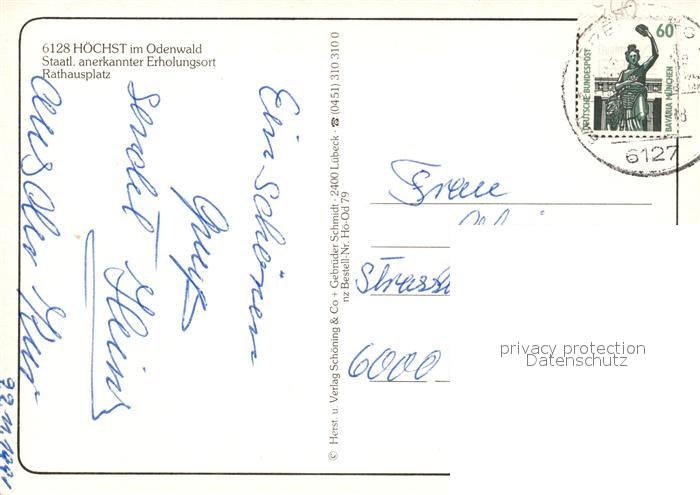 6128 HÖCHST im Odenwald
Staatl. anerkannter Erholungsort
Rathausplatz
Ein schönen
Gruß
sendet Heinz
aus der Kur
© Herst. u. Verlag Schöning & Co + Gebrüder Schmidt · 2400 Lübeck · ☎ (0451) 310 310 0
nz Bestell-Nr. Hö-Od 79
60
DEUTSCHE BUNDESPOST
BAVARIA MÜNCHEN
6127
Frau
6000
privacy protection
Datenschutz